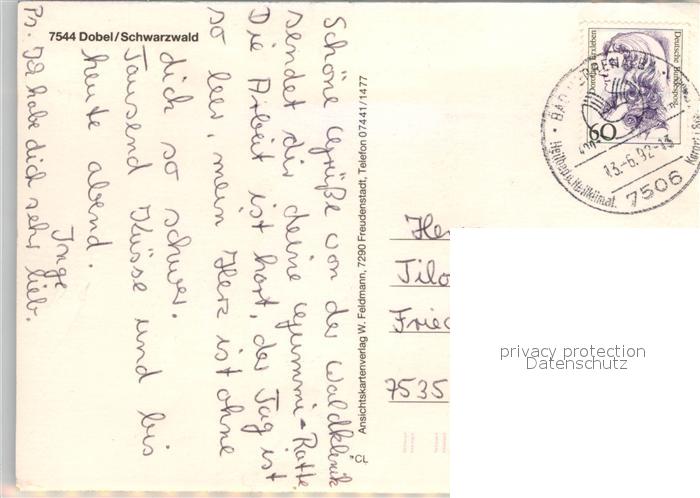 7544 Dobel/Schwarzwald
Schöne Grüße von der Waldklinik
sendet dir deine Gummi-Ratte
Die Arbeit ist hart, der Tag ist
so leer, mein Herz ist ohne
dich so schwer.
Tausend Küsse und bis
heute abend.
Inge
Ps. Ich habe dich sehr lieb.
Ansichtskartenverlag W. Feldmann, 7290 Freudenstadt, Telefon 07441/1477
CL
Deutsche Bundespost
Dorothea Erxleben
60
BAD HERRENALB
13.-6.92-13
7506
Heilbad u. Heilklimat. Kurort
Her
Tilo
Fried
7535
privacy protection
Datenschutz